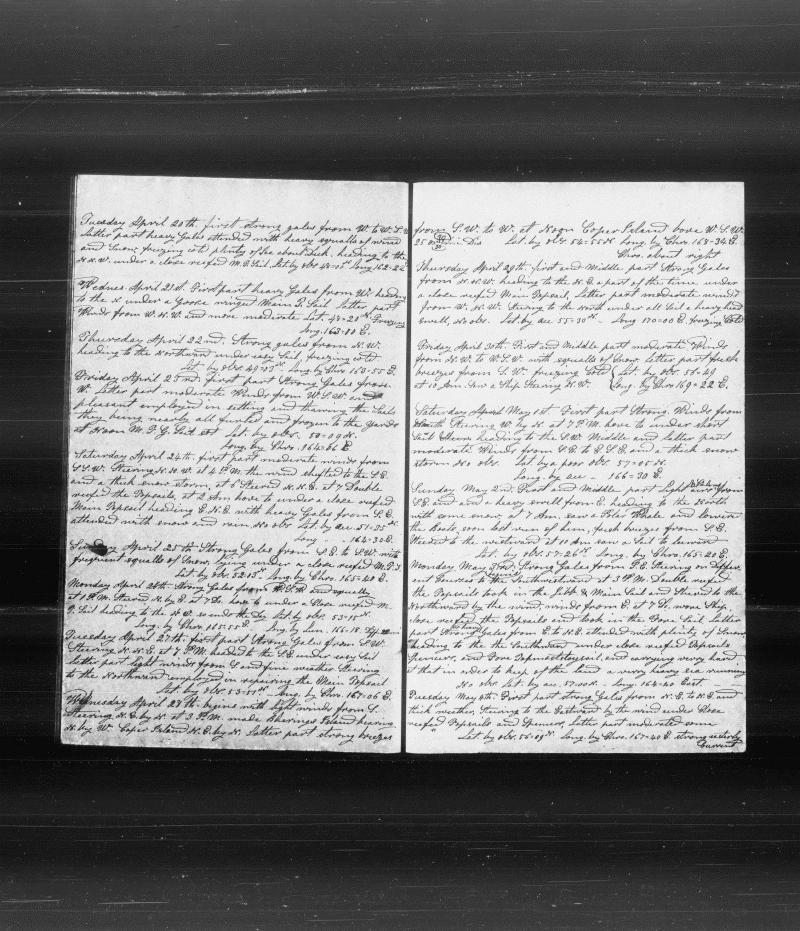 Tuesday April 20th, first strong gales from W. to W.S.W
Latter part heavy Gales attended with heavy squalls of wind
and Snow, freezing cold plenty of Ice about Deck, heading to the
N.N.W. under a close reefed M.T. Sail, Lat. by obs 48-15 N Long 162-22 E
Wednes April 21st. First part heavy Gales from W. heading
to the N under a Goose winged Main T. Sail Latter part
Winds from W.N.W. and more moderate Lat. 48=20 N. Freezing
Long. 163-30 E.
Thursday April 22nd. Strong gales from N.W.
heading to the Northward under easy Sail, freezing cold
Lat. by obs. 49-15 N. Long. by Chro 163-55 E.
Friday April 23rd. first part Strong Gales from
W. Latter part moderate Winds from W.S.W. and
pleasant employed in setting and thawing the Sails
they being nearly all furled and frozen to the yards
at Noon M.T.G. Sail set Lat. by obs. 50=09 N.
Long. by Chro. 164=06 E.
Saturday April 24th. first part moderate winds from
S.S.W. Steering N.N.W. at 4 P.M. the wind shifted to the S.E.
and a thick snow storm, at 6 Steered N.N.E. at 7 Double
reefed the Topsails, at 2 Am hove to under a close reefed
Main Topsail heading E.N.E. with heavy Gales from S.E.
attended with snow and rain, No obs Lat. by acc 51-35 N
Long - - 164-30 E.
Sunday April 25th Strong Gales from S.E. to S.W. with
frequent squalls of Snow, lying under a close reefed M.T.S
Lat. by obs. 52=13 N. Long. by Chro. 165=40 E.
Monday April 26th. Strong Gales from W.S.W. and squally
at 1 P.M. Steered N. by E. at 7 Do. hove to under a Close reefed M.
T. Sail heading to the N.W. so ends the Day Lat. by obs. 53-15 N
Long. by Chro. 165=55 E. Long by Lun. 166-18
Tuesday April 27th. first part Strong Gales from S.W.
Steering N.N.E. at 7 P.M. headed to the S.E. under easy Sail
latter part light winds from S. and fine weather Steering
to the Northward employed in repairing the Main Topsail
Lat. by obs 53-57 N. Long. by Chro. 167=06 E.
Wednesday April 28th. begins with light winds from S.
Steering N.E. by N. at 3 P.M. made Bherings Island bearing
N. by W. Coper Island N.E. by N. Latter part strong breezes
from S.W. to W. at Noon Coper Island bore W.S.W.
25 or 30 Dis Lat. by obs 54=55 N. Long. by Chro. 168-34 E.
Chro. about right
Thursday April 29th. first and Middle part Strong Gales
from N.N.W. heading to the N.E. a part of the time under
a close reefed Main Topsail, Latter part moderate winds
from W.N.W. Stering to the North under all Sail a heavy head
swell, No obs. Lat. by acc 55-30 N. Long 170=00 E. freezing Cold
Friday April 30th. First and Middle part moderate Winds
from N.W. to W.S.W. with squalls of Snow. Latter part fresh
breezes from S.W. freezing Cold Lat. by obs. 57-49
at 10 Am. Saw a Ship Steering N.W. Long. by Chro 169=22 E.
Saturday April May 1st. First part Strong Winds from
South Steering W. by N. at 7 P.M. hove to under short
Sail heading to the S.W. Middle and latter part
moderate Winds from S.E. to E.S.E. and a thick snow
storm No obs. Lat. by a poor obs. 57=05 N.
Long. by acc - 166=30 E.
Sunday May 2nd. First and Middle part Light airs from
S.E. and a heavy swell from E. heading to the North
with some snow, at 7 Am. saw a Polar Whale and lowered
the Boats, soon lost run of him, fresh breezes from S.E.
Steered to the westward at 10 Am saw a Sail to leward
Lat. by obs. 57=26 N. Long. by Chro. 165=20 E.
Monday May 3rd. first Strong Gales from S.E. Steering on Differ-
ent Courses to the Southwestward at 3 P.M. Double reefed
the Topsails took in the Jibb & Main Sail and Steered to the
Northward by the wind, winds from E. at 7 Do. wore Ship,
close reefed the Topsails and took in the Fore Sail Latter
part Strong Gales from E. to N.E. attended with plenty of Snow,
heading to the Southward under close reefed Topsails
Spencers, and Fore Topmoststaysail, and carrying very hard
at that in order to keep of the land a very heavy sea running
No obs. Lat. by acc. 57=00 N. Long. 164=40 East
Tuesday May 4th. First part strong Gales from N.E. to N.E. and
thick weather, Steering to the Eastward by the wind under Close
reefed Topsails and Spencer, Latter part moderated some
Lat. by obs. 56=09 N. Long. by Chro. 167=40 E. strong
Current